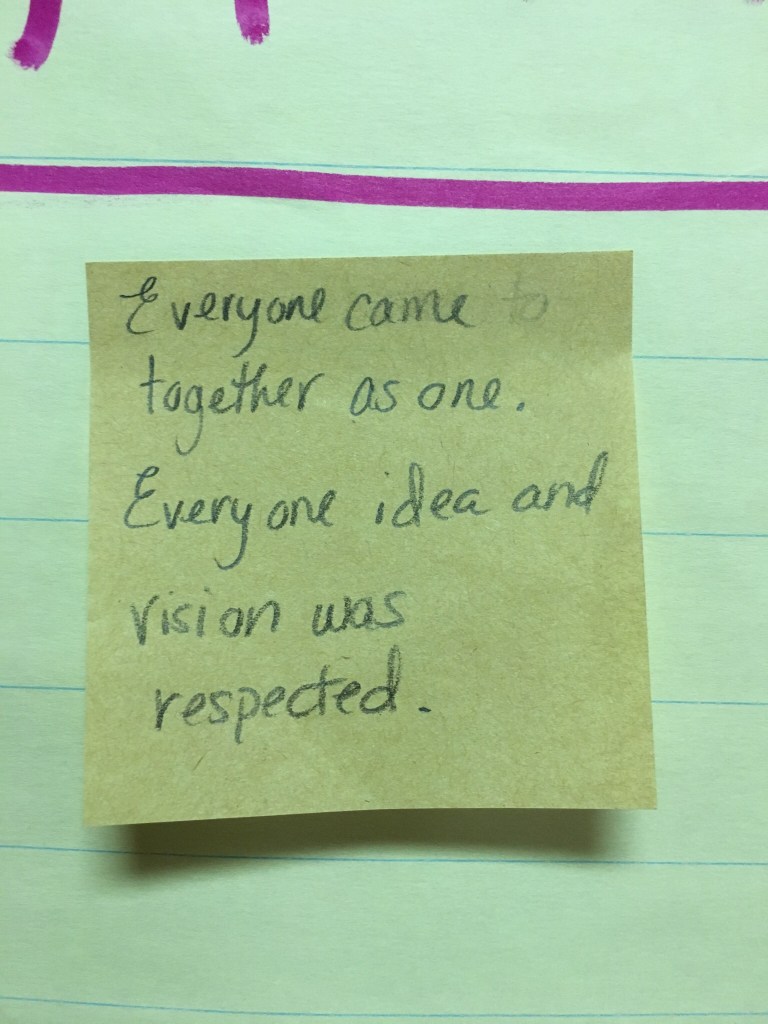 Everyone came
together as one.
Everyone idea and
vision was
respected.